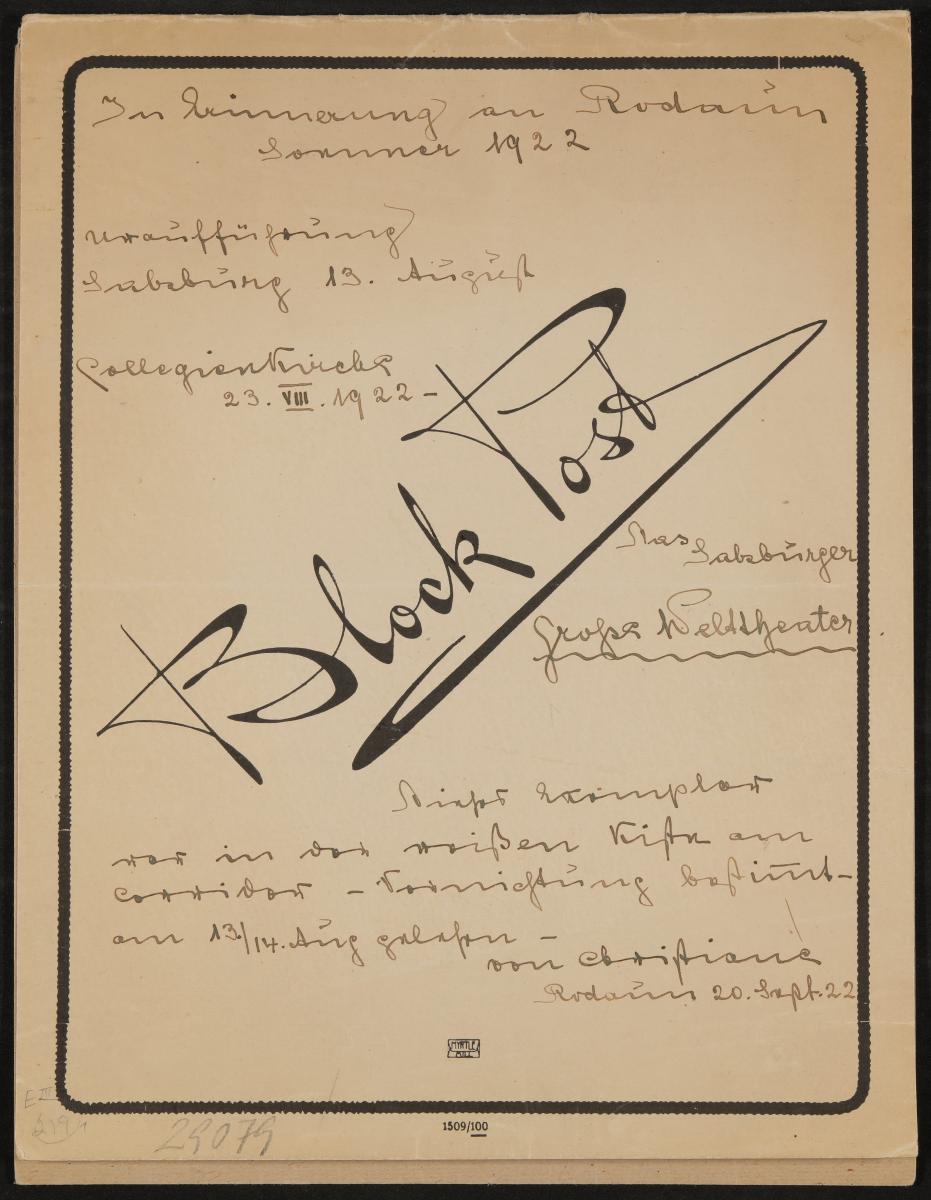 In Erinnerung an Rodaun
Sommer 1922
Uraufführung
Salzburg 13. August
Collegienkirche
23. VIII. 1922 –
Block Post
Das Salzburger
Große Welttheater.
Dieses Exemplar
war in der weißen Kiste am
Corridor – Vernichtung bestim̅t –
am 13./14. Aug gelesen –
von Christiane
Rodaun 20. Sept. 22
MYRTLE
MILL
1509/100
E III
29079